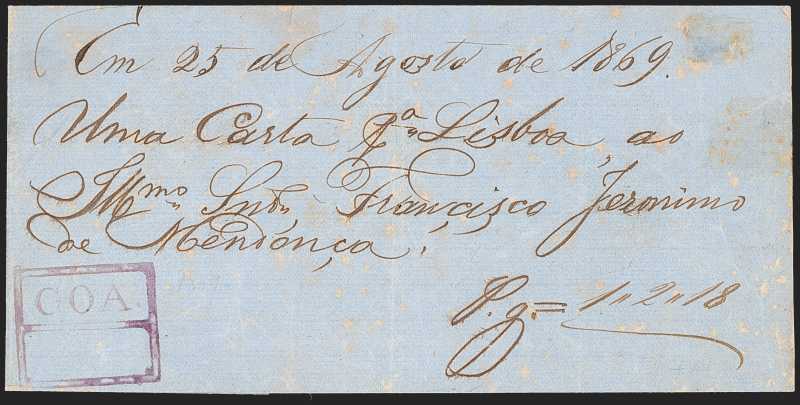 Em 25 de Agosto de 1869.
Uma Carta pª Lisboa ao
Illmo Snr Francisco Jeronimo
de Mendonça.
P.g. = 1 " 2 " 18
GOA.